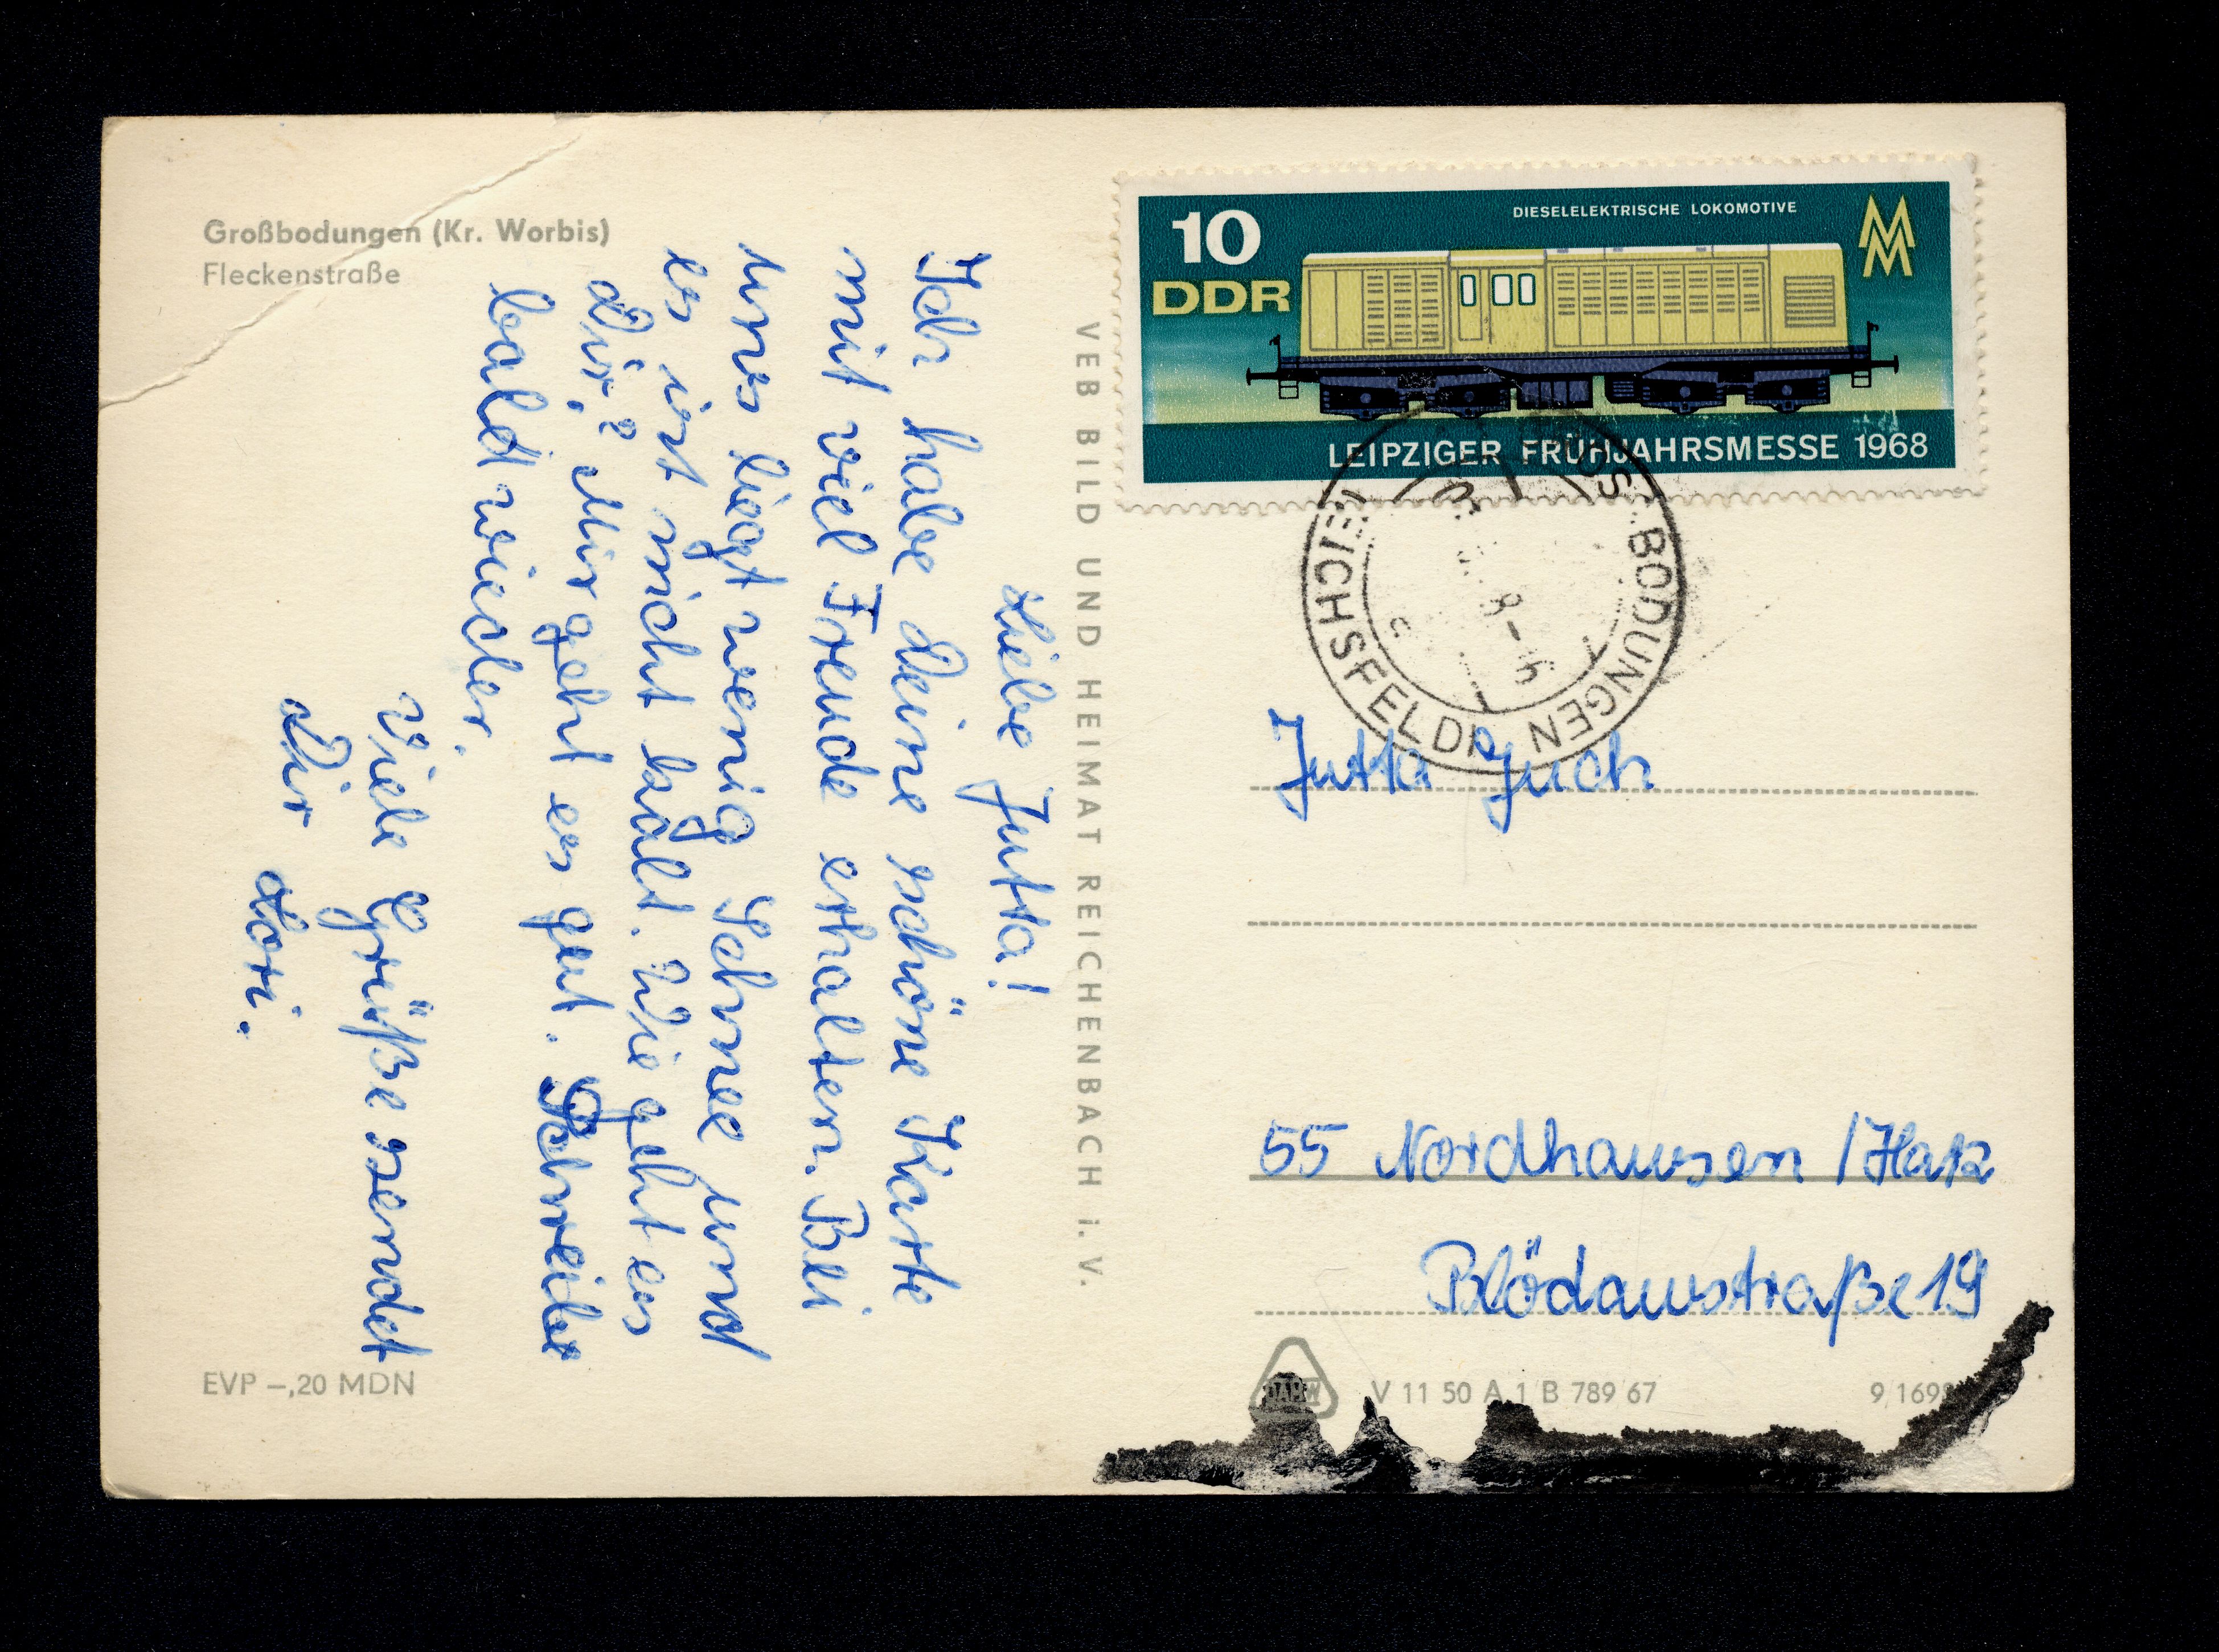 Großbodungen (Kr. Worbis)
Fleckenstraße
Liebe Jutta!
Ich habe Deine schöne Karte
mit viel Freude erhalten. Bei
uns liegt wenig Schnee und
es ist nicht kalt. Wie geht es
Dir? Mir geht es gut. Schreibe
bald wieder.
Viele Grüße sendet
Dir Lori.
EVP –,20 MDN
VEB BILD UND HEIMAT REICHENBACH i. V.
10
DDR
DIESELELEKTRISCHE LOKOMOTIVE
MM
LEIPZIGER FRÜHJAHRSMESSE 1968
BODUNGEN
EICHSFELD
Jutta Juch
55 Nordhausen /Harz
Blödaustraße 19
DAMW
V 11 50 A 1 B 789 67
9,169